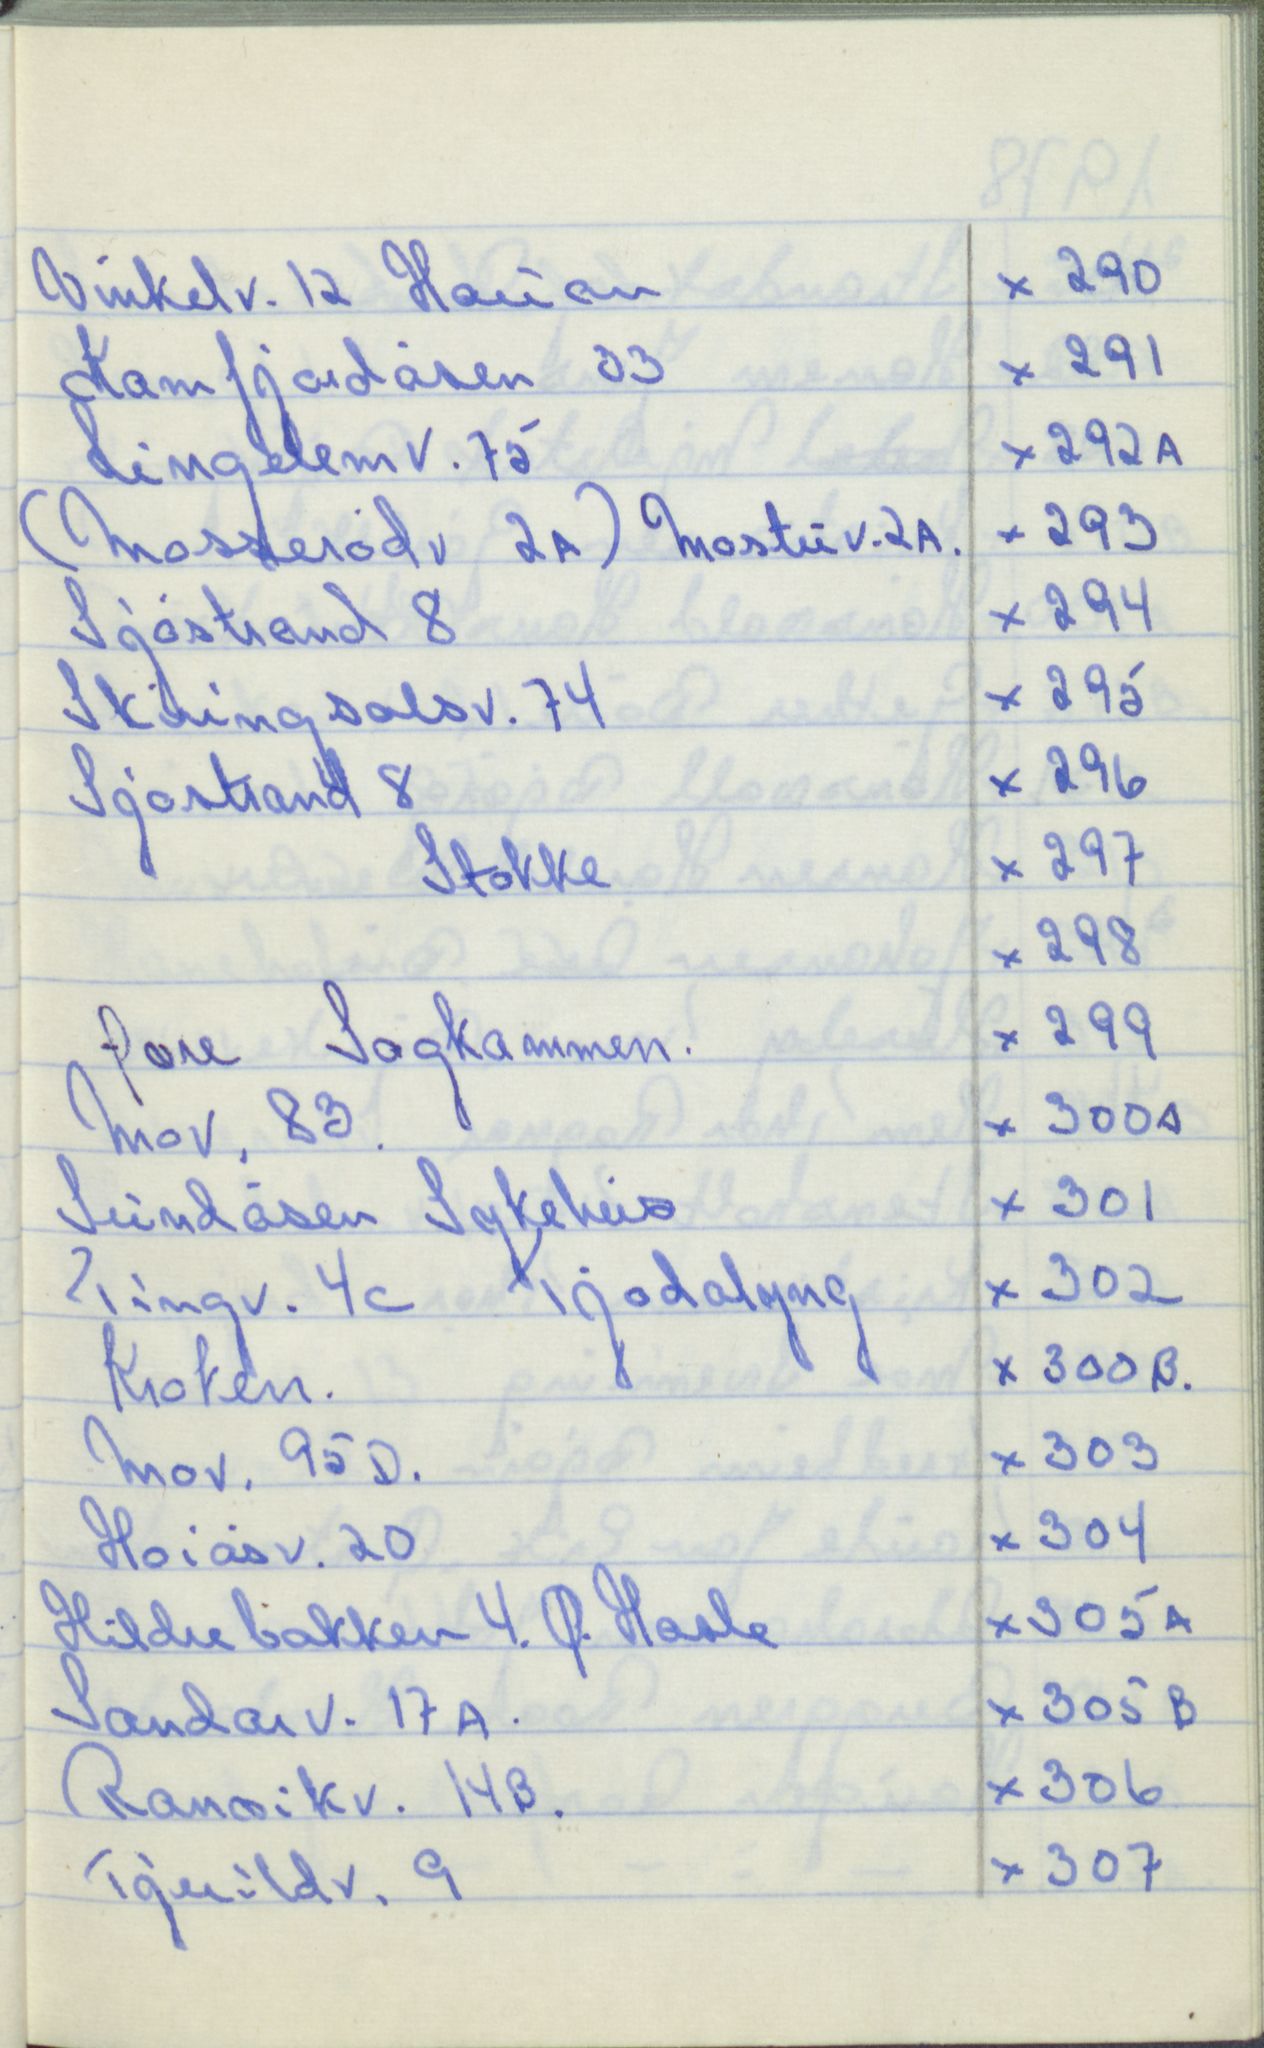 Vinkelv. 12 Haūan x 290
Kamfjordåsen 33 x 291
Lingelemv. 75 x 292A
(Mosserødv 2A) Mostūv. 2A. x 293
Sjøstrand 8 x 294
Skiringsalsv. 74 x 295
Sjøstrand 8 x 296
Stokke x 297
x 298
fore Sagkammen. x 299
Mov. 83. x 300A
Sūndåsen Sykehūs x 301
Tingv. 4c Tjodalyng x 302
Kroken. x 300B.
Mov. 95D. x 303
Hoiåsv. 20 x 304
Hildrebakken 4. Ø. Hasle x 305A
Sandarv. 17A. x 305B
Ranvikv. 14B. x 306
x 307